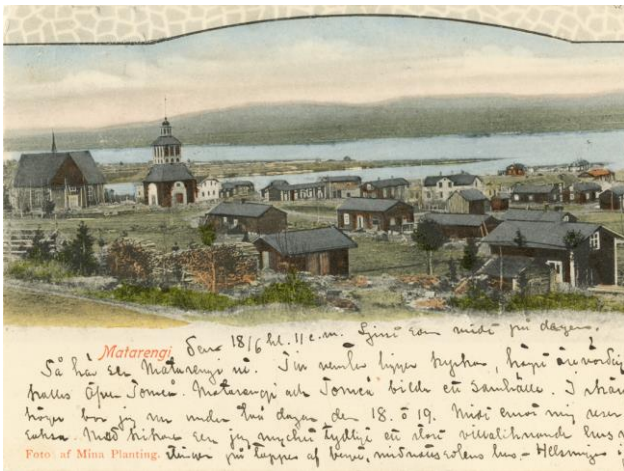 Matarengi
den 18/6 kl. 11 e.m. Ljust som midt på dagen.
Så här ser Matarengi ut. Till venster ligger kyrkan,
kallas Öfver Torneå. Matarengi och Torneå bilda ett Samhälle. I
höger bor jag nu under två dagar den 18. o 19. Midt emot mig reser
Med kikare ser jag mycket tydligt ett stort villaliknande hus
på toppen af berget, midnattssolens hus - Hellsningar
Foto af Mina Planting.